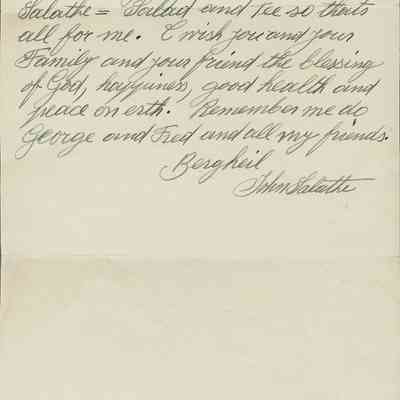 Salathe = Salad and Tee so thats
all for me. I wish you and your
Family and your friend the blessing
of God, happiness, good health and
peace on erth. Remember me do
George and Fred and all my friends.
Bergheil
John Salathe